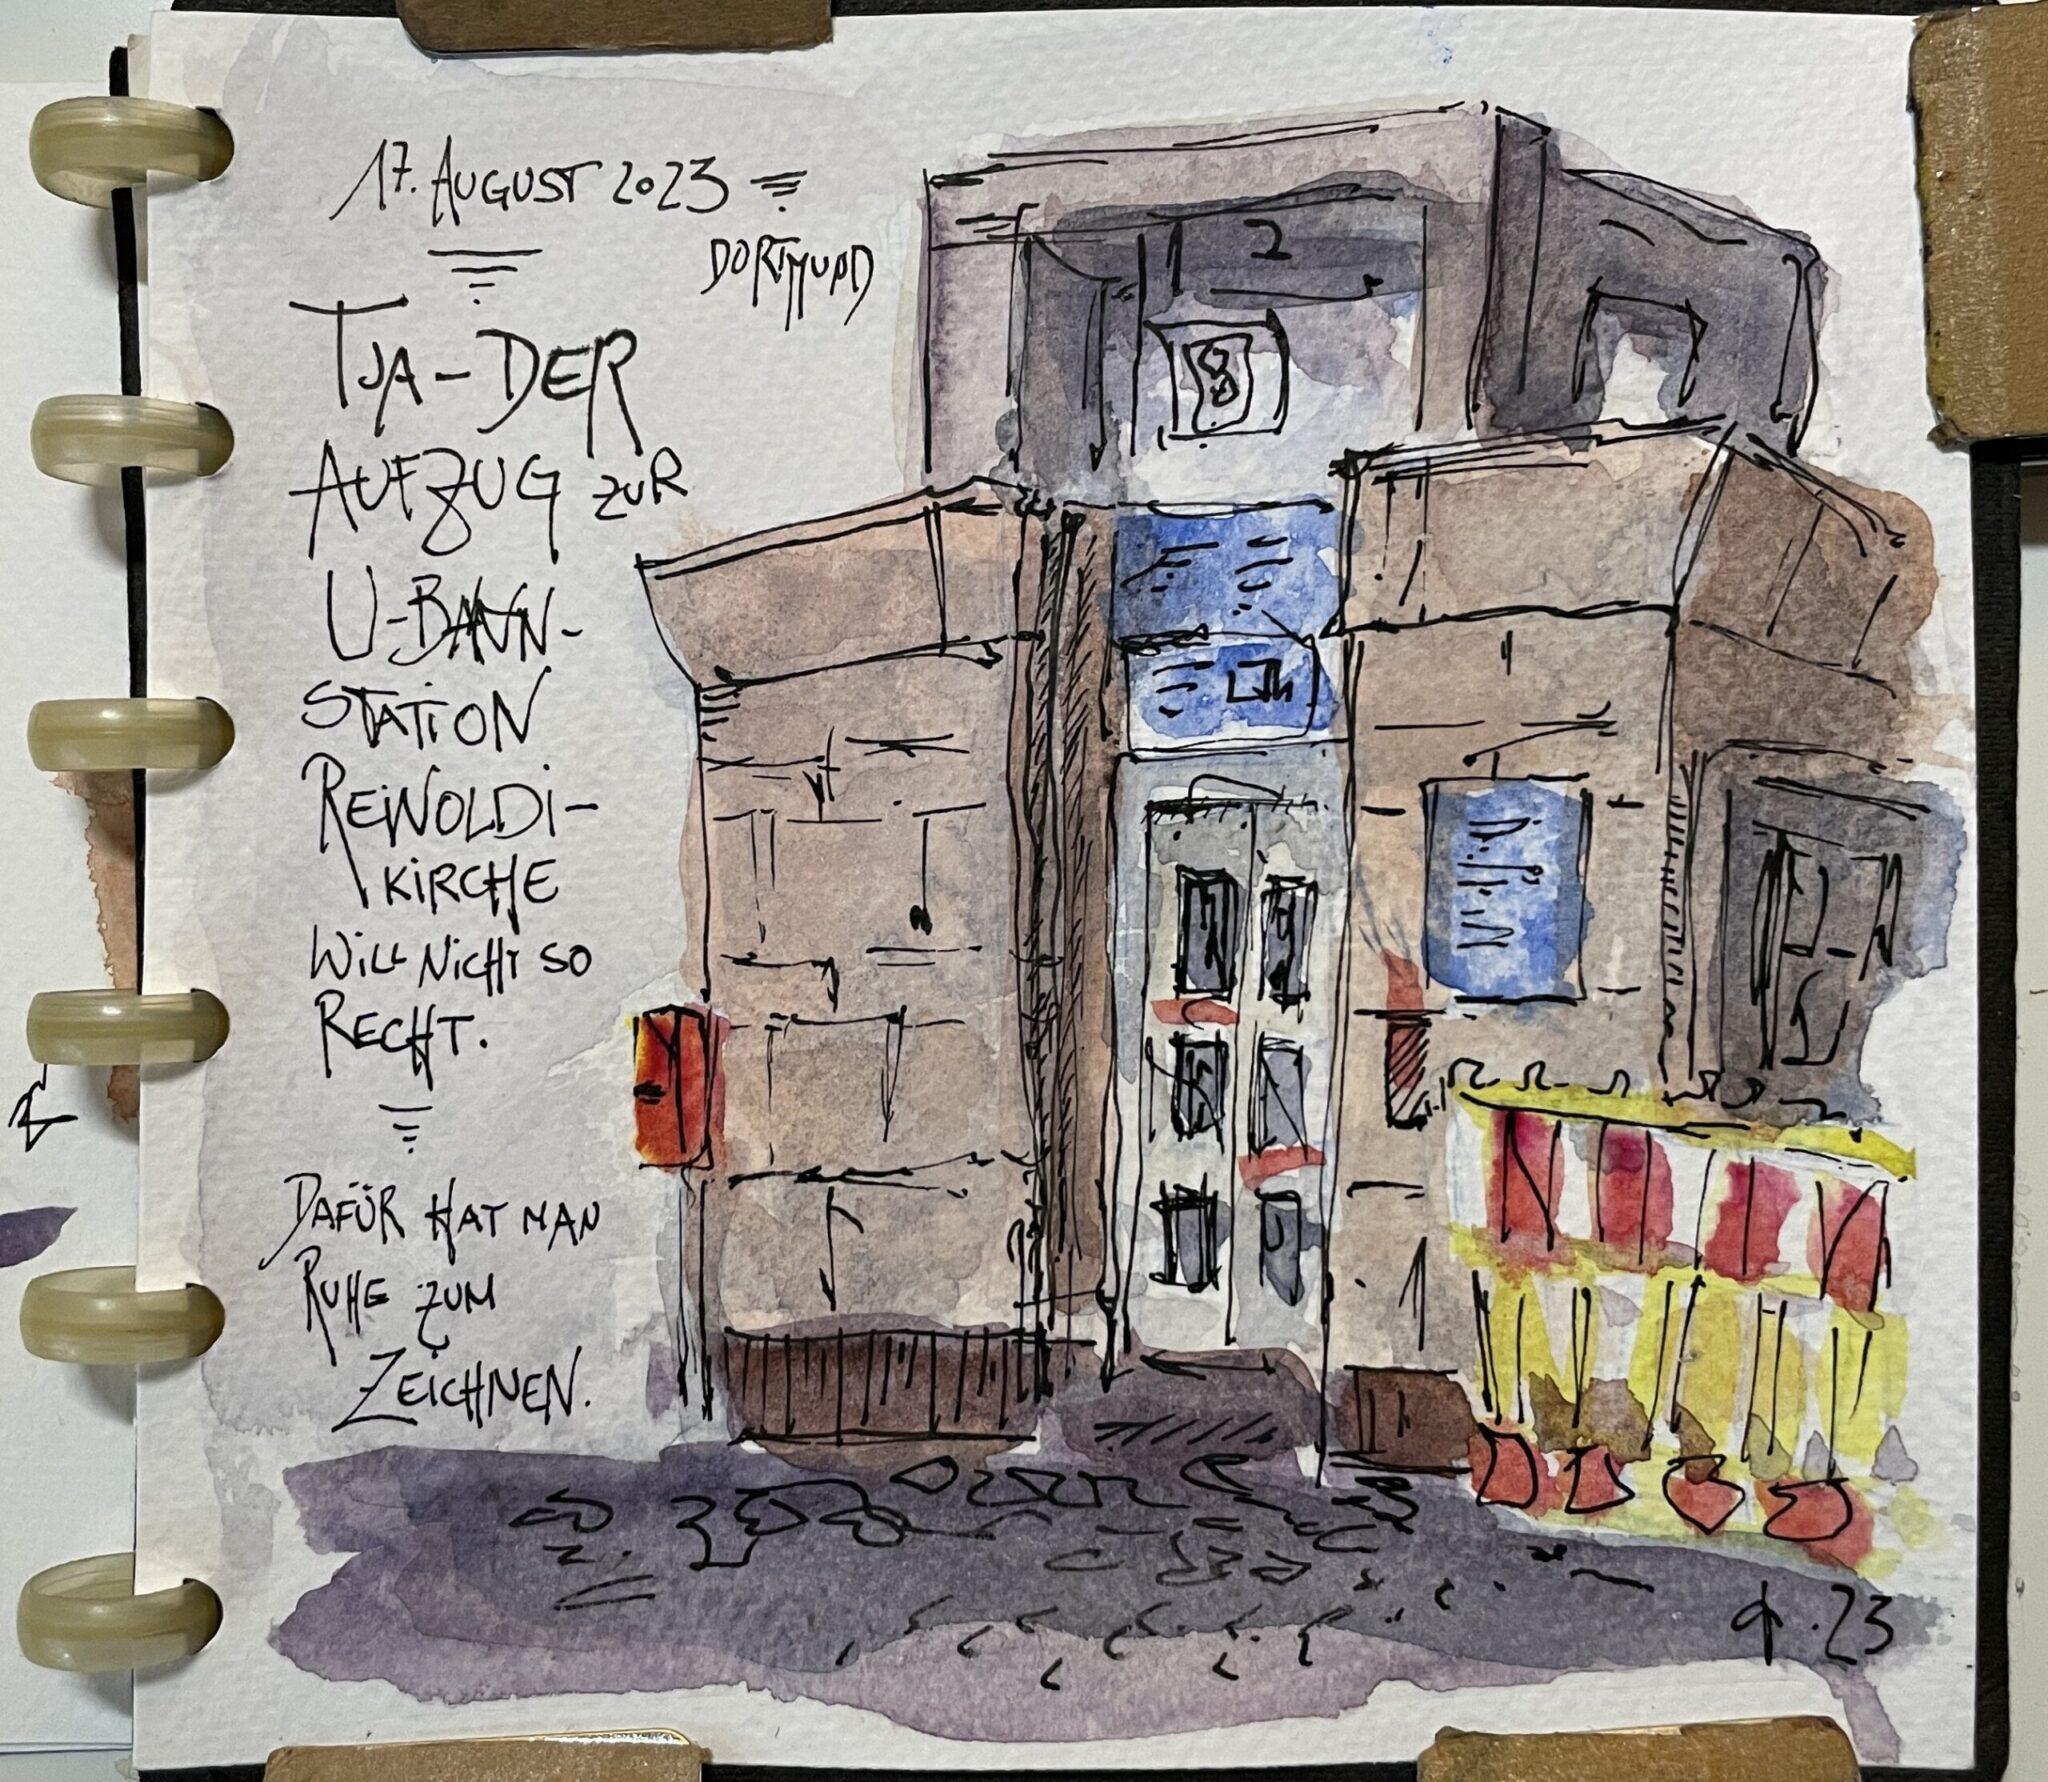 17. AUGUST 2023
DORTMUND
TJA - DER
AUFZUG ZUR
U-BAHN-
STATION
REINOLDI-
KIRCHE
WILL NICHT SO
RECHT.
DAFÜR HAT MAN
RUHE ZUM
ZEICHNEN.
.23